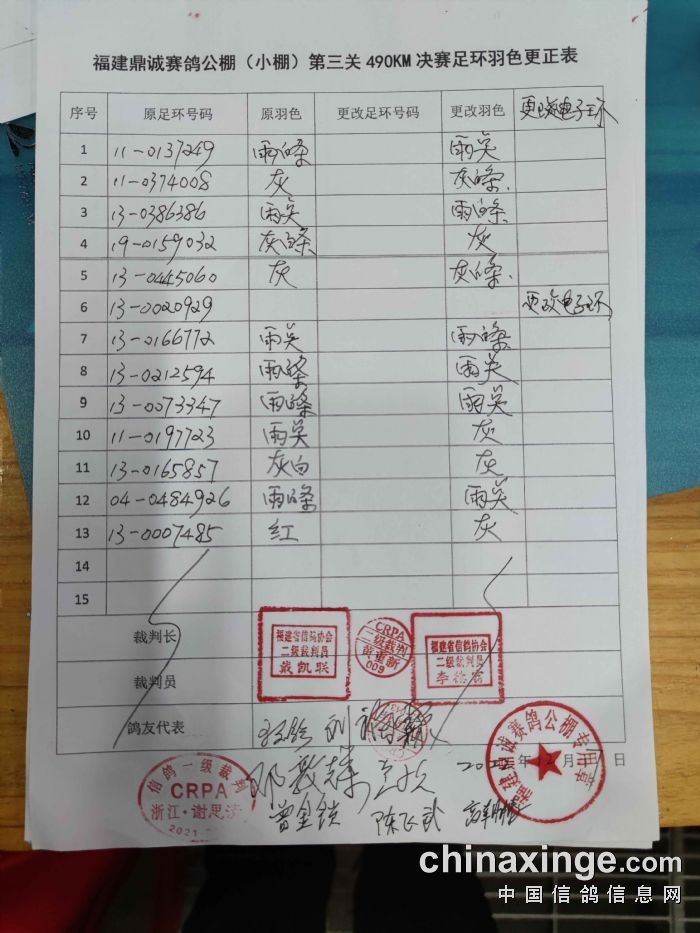 福建鼎诚赛鸽公棚（小棚）第三关 490KM 决赛足环羽色更正表
序号 原足环号码 原羽色 更改足环号码 更改羽色 更改电子环
1 11-0137249 雨白條 雨央
2 11-0374008 灰 灰白條
3 13-0386386 雨央 雨白條
4 19-0159032 灰白條 灰
5 13-0445060 灰 灰白條
6 13-0020929 更改电子环
7 13-0166772 雨央 雨白條
8 13-0212594 雨白條 雨央
9 13-0073347 雨白條 雨央
10 11-0197723 雨央 灰
11 13-0165857 灰白 灰
12 04-0484926 雨白條 雨央
13 13-0007485 红 灰
14
15
裁判长
福建省信鸽协会
二级裁判员
戴凯联
CRPA
二级裁判
黄重新
009
福建省信鸽协会
二级裁判员
裁判员
鸽友代表
年 月 日
福建鼎诚赛鸽公棚专用章
信鸽一级裁判
CRPA
浙江·谢思济
2021
曾金锁 陈飞武
chinaxinge.com
中国信鸽信息网